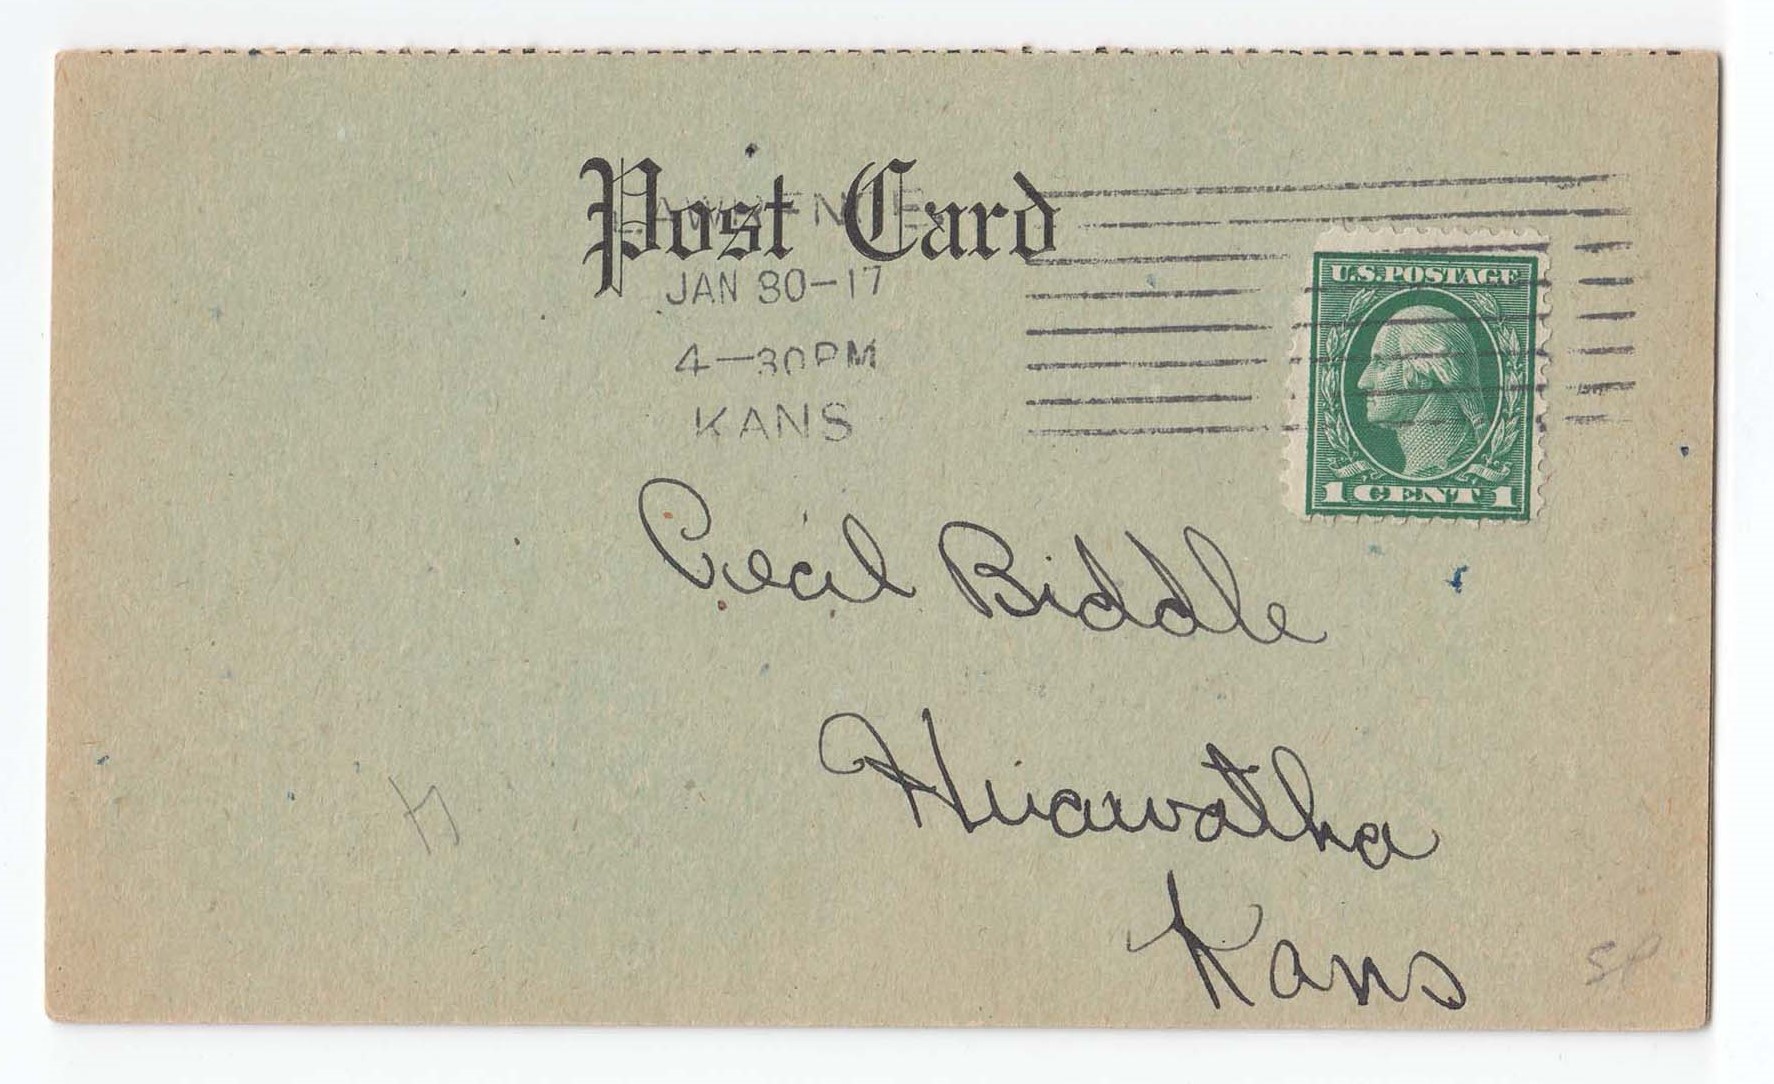 Post Card
LAWRENCE
JAN 30-17
4-30PM
KANS
U.S. POSTAGE
1 CENT 1
Cecil Biddle
Hiawatha
Kans